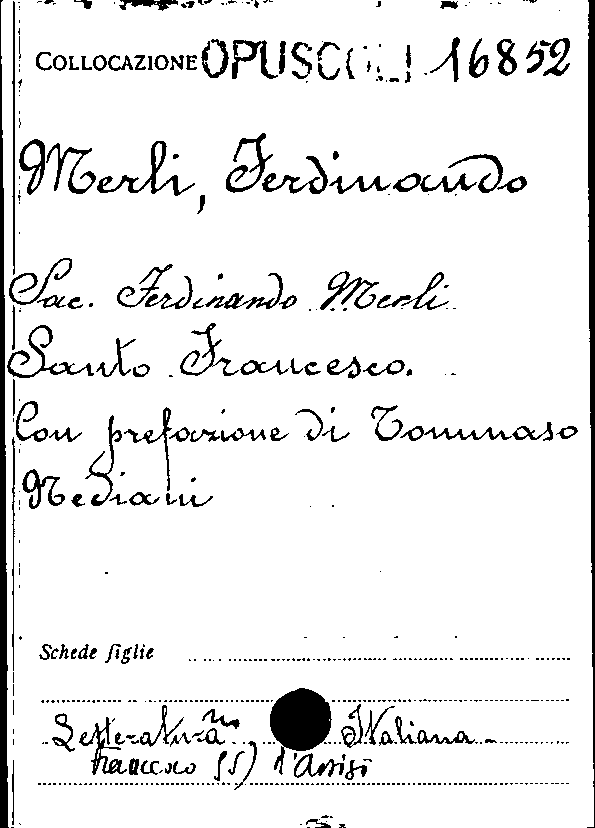 COLLOCAZIONE OPUSCOLI 16852
Merli, Ferdinando
Sac. Ferdinando Merli
Santo Francesco.
Con prefazione di Tommaso
Nediani
Schede figlie
Letteratura Italiana -
Francesco (S) d'Assisi